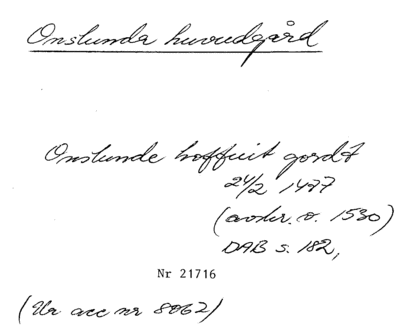 Onslunda huvudgård
Onslunde hoffuit gordt
24/2 1477
(avskr. o. 1530)
DAB s. 182,
Nr 21716
(Ur acc nr 8062)